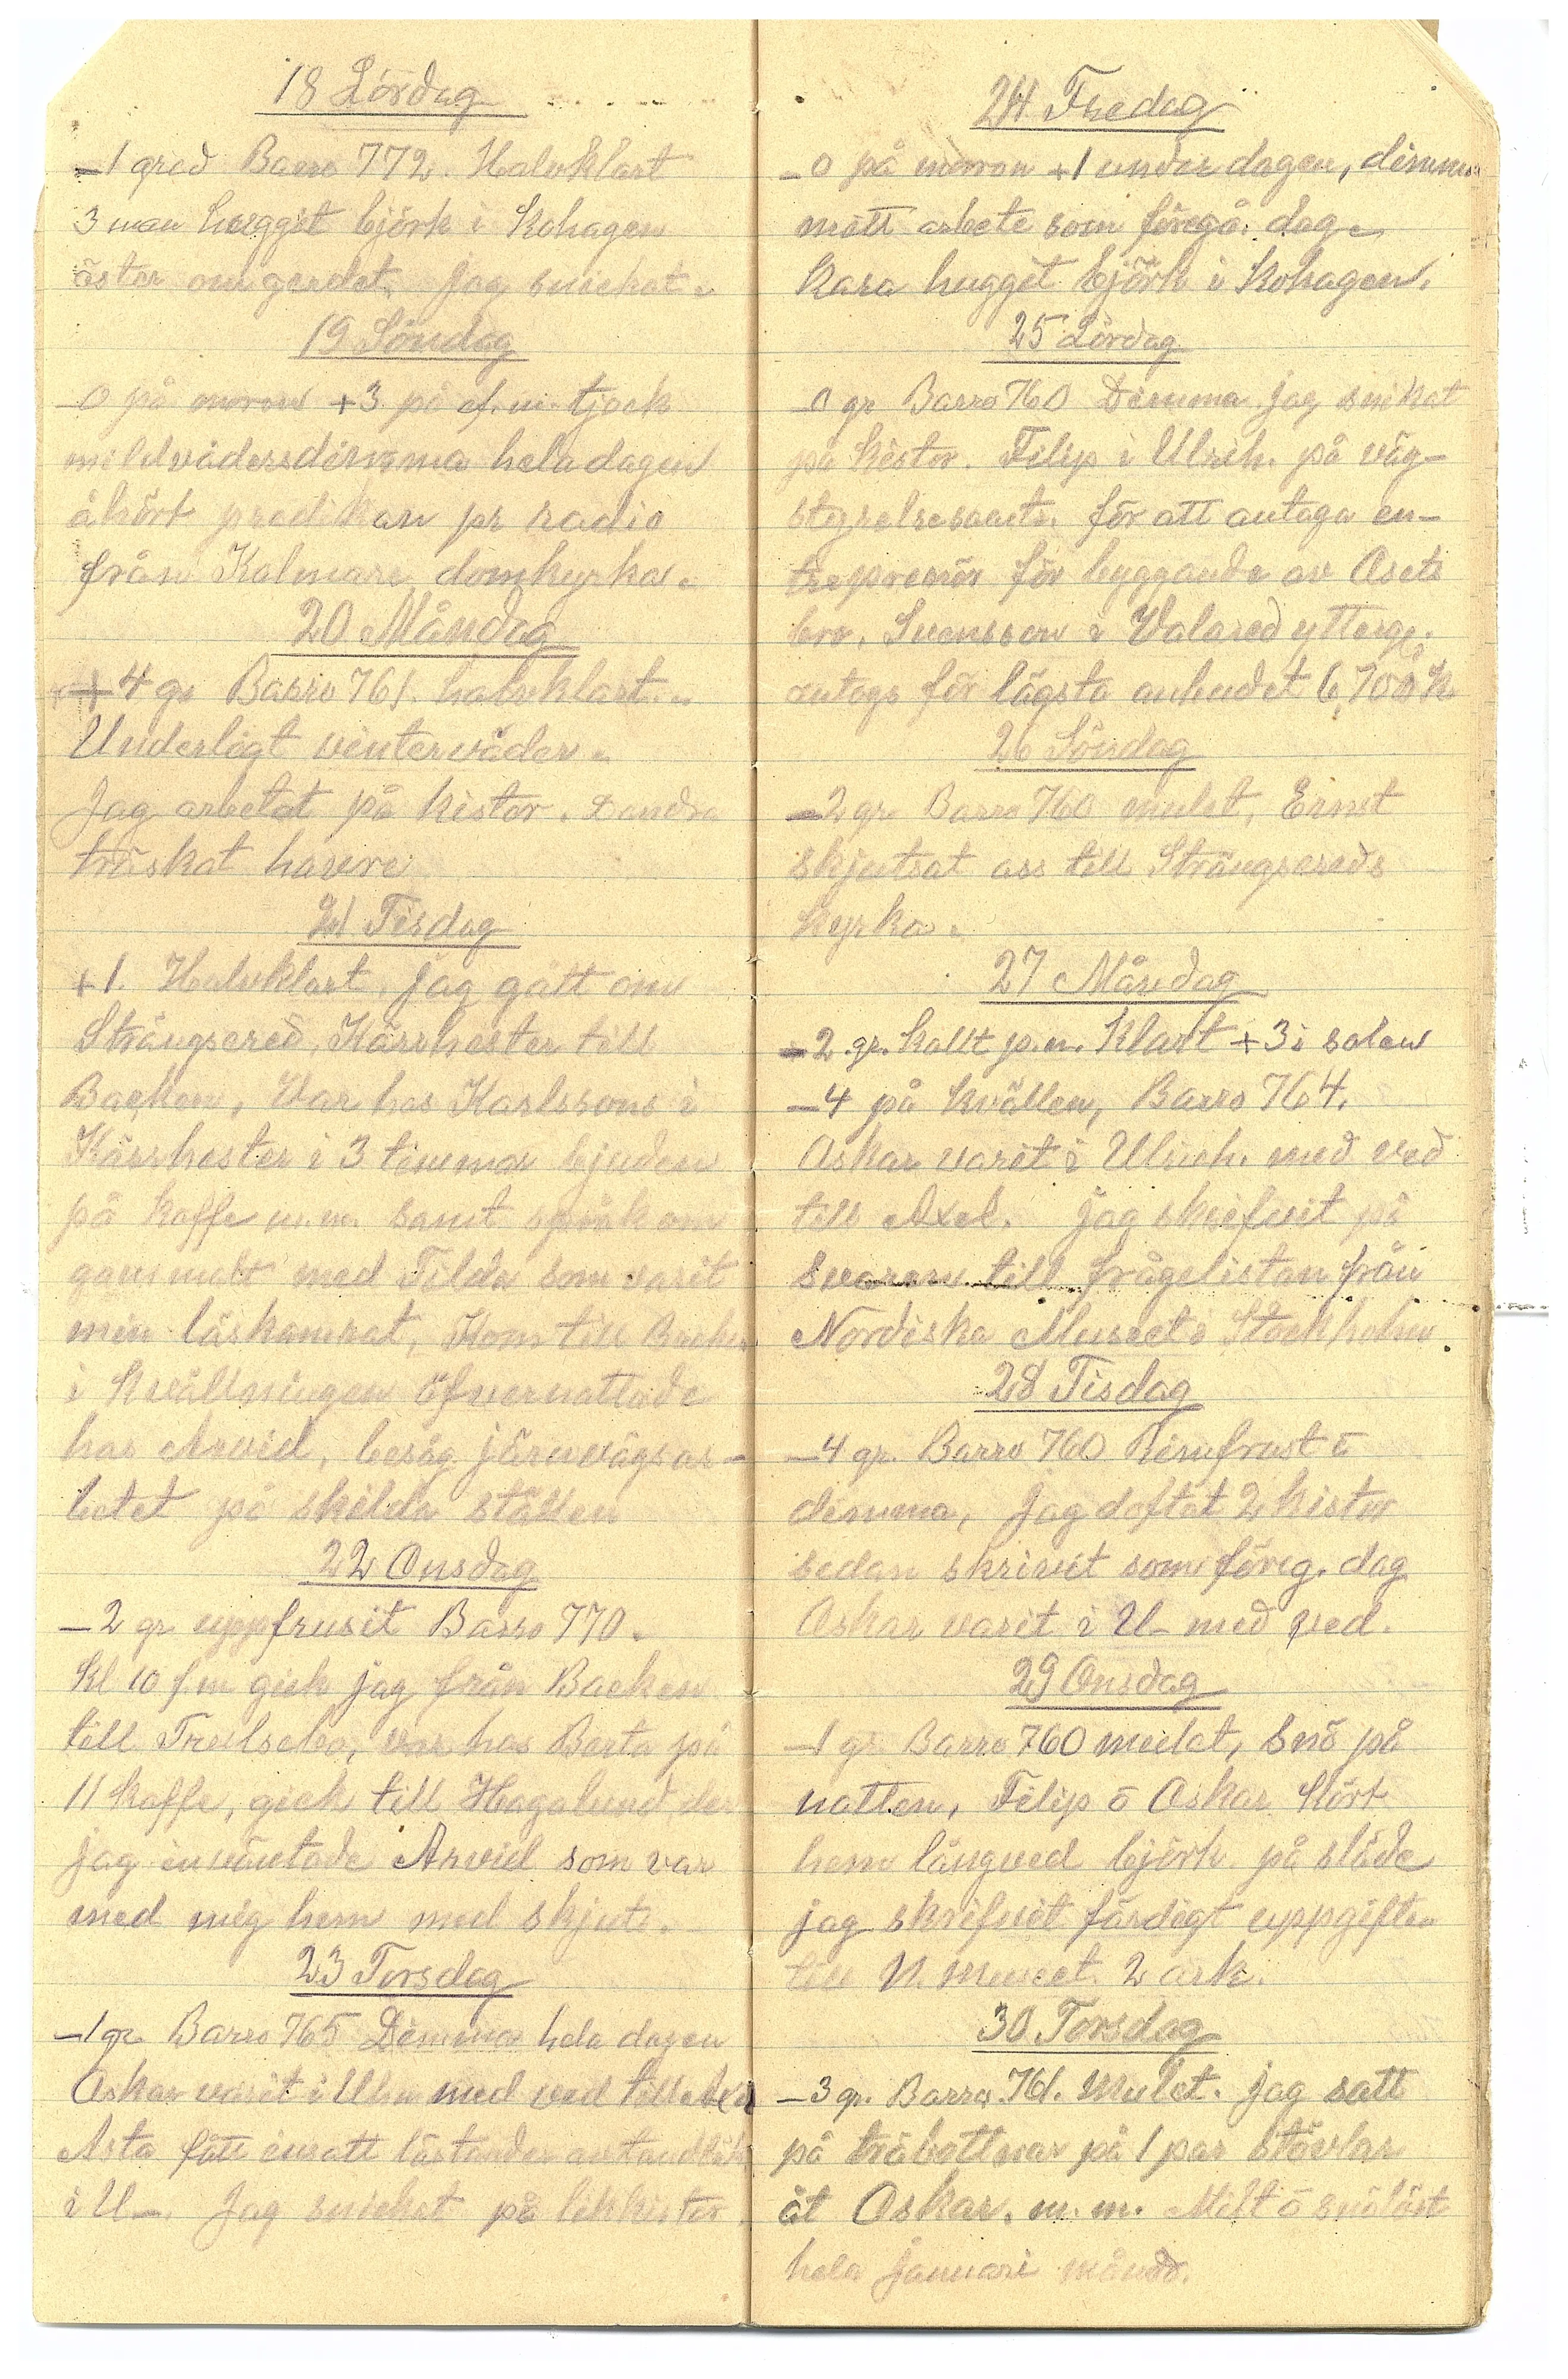 18 Lördag
-1 grad Barro 772. Halvklart
3 man huggit björk i Kohagen
öster om gerdet. Jag snickat.
19 Söndag
-0 på morron +3 på ef.m. tjock
mildvädersdimma hela dagen
åhört predikan pr radio
från Kalmare domkyrka.
20 Måndag
+4 gr Barro 761. halvklart.
Underligt vinterväder.
Jag arbetat på kistor. Dandra
träskat havre
21 Tisdag
+1. Halvklart. Jag gått om
Strängsered, Kärrhester till
Backen, Var hos Karlssons i
Kärrhester i 3 timmar bjuden
på kaffe m.m. samt språk om
gammalt med Tilda som varit
min läskamrat, Kom till Backen
i kvällningen öfvernattade
hos Arvid, besåg järnvägsar-
betet på skilda ställen
22 Onsdag
-2 gr uppfrusit Barro 770.
Kl 10 f.m gick jag från Backen
till Trulsebo, var hos Berta på
11 kaffe, gick till Hagalund der
jag inväntade Arvid som var
med mig hem med skjuts.
23 Torsdag
-1 gr Barro 765 Dimma hela dagen
Oskar varit i Ulr. med ved till Axel
Asta fått insatt löständer av tandläk
i U-. Jag snickat på likkistor
24 Fredag
-0 på morron +1 under dagen, dimma
mått arbete som föregå. dag
Kara hugget björk i Kohagen.
25 Lördag
-0 gr Barro 760 Dimma jag snikat
på kistor. Filip i Ulrih. på väg-
styrelsesamts. för att antaga en-
treprenör för byggande av Asets
bro, Svensson i Valared ytterg.
antogs för lägsta anbudet 6,700 K
26 Söndag
-2 gr Barro 760 mulet, Ernst
skjutsat oss till Strängsereds
kyrka.
27 Måndag
-2 gr. kallt p.m. Klart +3 i solen
-4 på kvällen, Barro 764.
Oskar varit i Ulrich. med ved
till Axel. Jag skrifvit på
svaren till frågelistan från
Nordiska Museet i Stockholm.
28 Tisdag
-4 gr. Barro 760 Rimfrost o
dimma, Jag doftat 2 kistor
sedan skrivit som föreg. dag
Oskar varit i U- med ved.
29 Onsdag
-1 gr. Barro 760 mulet, Snö på
natten, Filip o Oskar kört
hem långved björk på släde
jag skrifvit färdigt uppgiften
till N. Museet. 2 ark.
30 Torsdag
-3 gr. Barro. 761. Mulet. Jag satt
på träbottnar på 1 par stövlar
åt Oskar. m. m. Milt o snölöst
hela Januari månad.